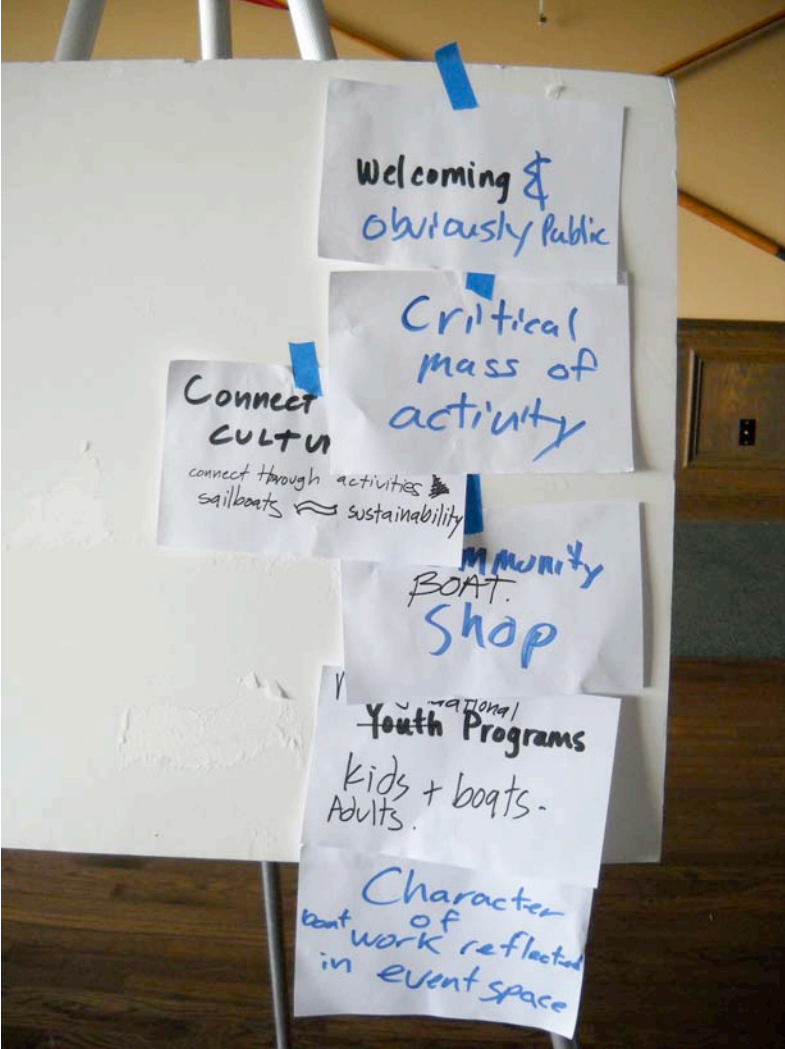 Welcoming &
obviously Public
Critical
mass of
activity
Connect
CULTU
connect through activities
sailboats sustainability
mmunity
BOAT.
Shop
ational
Youth Programs
kids + boats.
Adults.
Character
of
boat work reflected
in event space